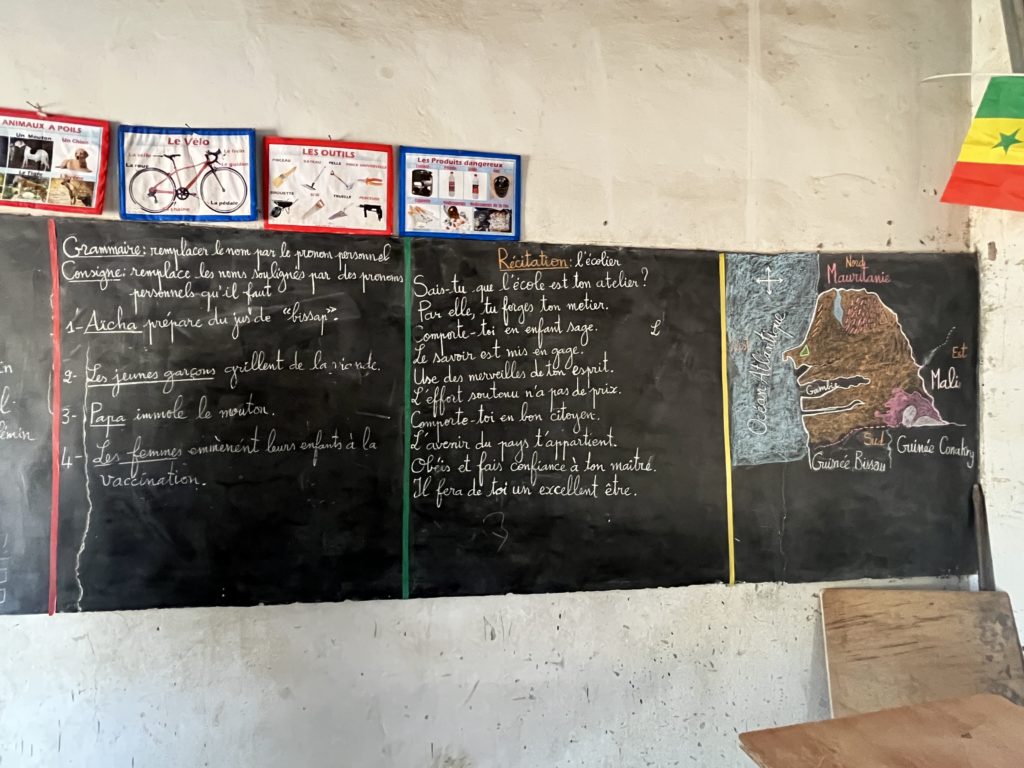 ANIMAUX A POILS
Un Mouton
Un Chien
Le Tigre
Le Vélo
La selle
Le frein
La roue
Le guidon
La pédale
La chaine
LES OUTILS
PINCEAU
RATEAU
PELLE
PINCE UNIVERSELLE
BROUETTE
SCIE
TRUELLE
PERCEUSE
Les Produits dangereux
Grammaire: remplacer le nom par le pronon personnel
Consigne: remplace les noms soulignés par des pronoms
personnels qu'il faut
1- Aïcha prépare du jus de "bissap".
2- Les jeunes garçons grillent de la viande.
3- Papa immole le mouton.
4- Les femmes emmènent leurs enfants à la
vaccination.
Récitation: l'écolier
Sais-tu que l'école est ton atelier?
Par elle, tu forges ton metier.
Comporte-toi en enfant sage.
Le savoir est mis en gage.
Use des merveilles de ton esprit.
L'effort soutenu n'a pas de prix.
Comporte-toi en bon citoyen.
L'avenir du pays t'appartient.
Obéis et fais confiance à ton maître.
Il fera de toi un excellent être.
Nord
Mauritanie
Océan Atlantique
Est
Gambie
Mali
Sud
Guinée Bissau
Guinée Conakry